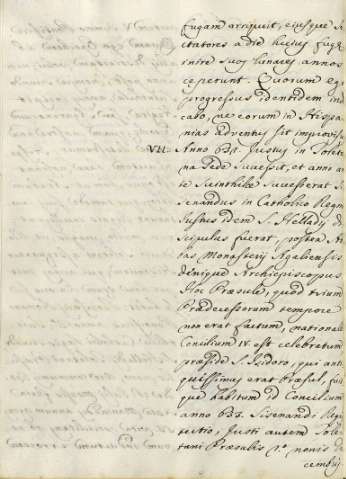 fugam arripuit, eiusque se
ctatores a die huius fugæ
inire suos lunares annos
cœperunt. Quorum ego
progressus identidem indi
cabo, ne eorum in Hispa
nias adventus sit improvis
VII. Anno 631. Justus in Toleta
na Sede successit, et anno an
te Suinthilæ successerat Si
senandus in Catholico Regn
Justus idem S. Helladij di
scipulus fuerat, postea Ab
bas Monasterij Agaliensis
denique Archiepiscopus
Hoc Præsule, quod trium
Prædecessorum tempore
non erat factum, nationale
Concilium IV. est celebratum
præside S. Isidoro, qui anti
quissimus erat Præsul, fuit
que habitum id Concilium
anno 633. Sisenandi Regis
tertio, Justi autem Tole
tani Præsulis 1.º nonis de
cembris